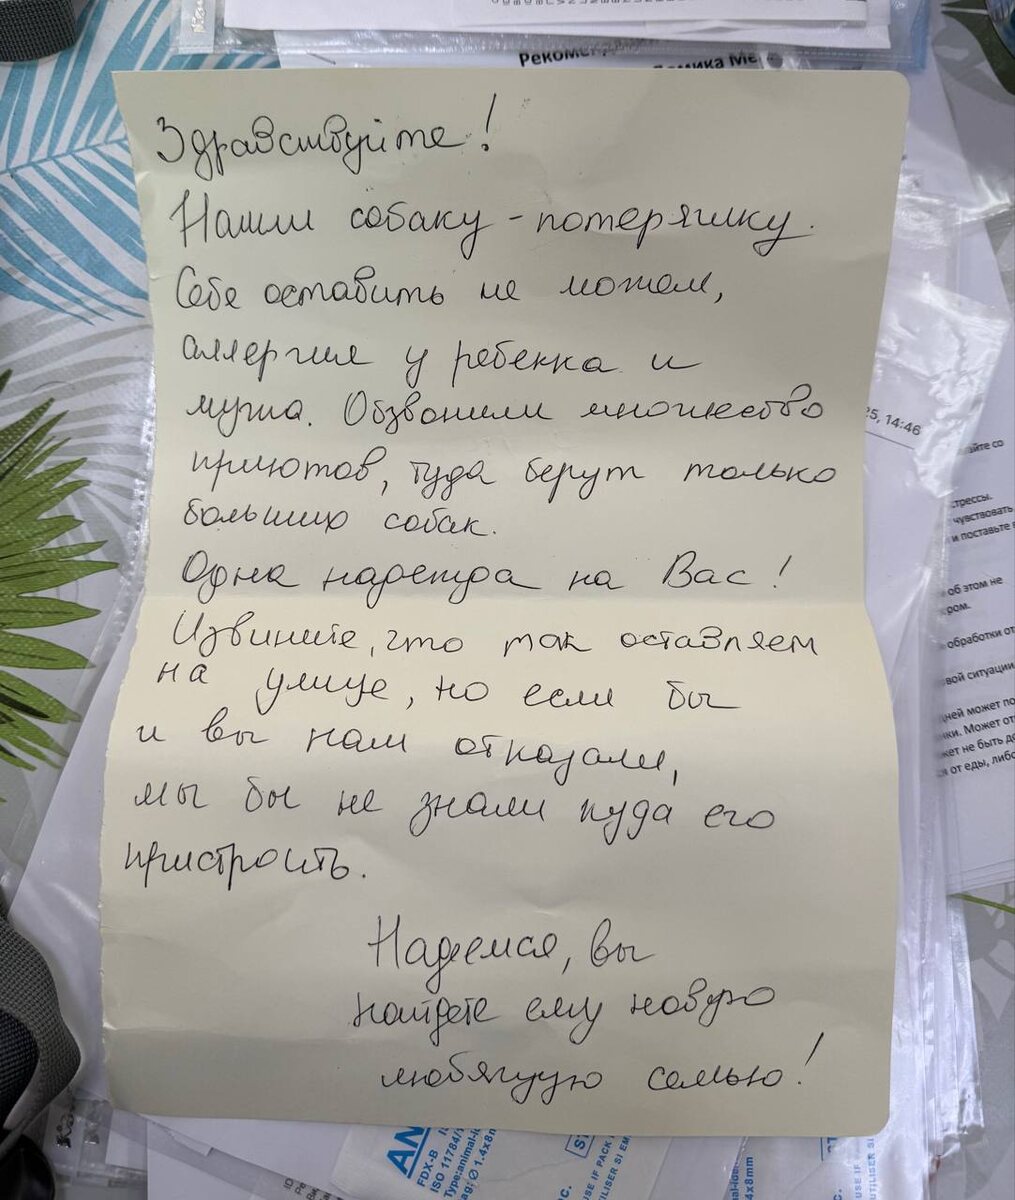 Рекоме
омика Ме
Здравствуйте!
Нашли собаку-потеряшку.
Себе оставить не можем,
аллергия у ребенка и
мужа. Обзвонили множество
приютов, туда берут только
больших собак.
Одна надежда на Вас!
Извините, что так оставляем
на улице, но если бы
и вы нам отказали,
мы бы не знали куда его
пристроить.
Надемся, вы
найдете ему новую
любящую семью!
25, 14:46
айте со
трессы.
чувствовать
и поставьте
об этом не
ром.
обработки от
вой ситуации
дней может по
ки. Может от
жет не быть де
я от еды, либо
AN
FDX-B
ISO 11784/
Type:animal-i
ag: Ø 1.4x8m
USE IF PACK
UTILISER SI EM
al-ior
1.4x8mm
USE IF
TILISER SI E